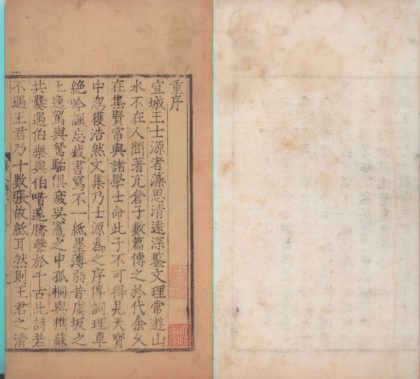 重序
宜城王士源者藻思清遠深鑒文理常遊山
水不在人間著亢倉子數篇傳之於代余久
在集賢常與諸學士命此子不可得見天寶
中忽獲浩然文集乃士源爲之序傳詞理卓
絕吟諷忘疲書寫不一紙墨薄弱昔虞坂之
上逸駕與駑駘俱疲吳竈之中孤桐與樵蘇
共爨遇伯樂與伯喈遂騰聲於千古此詩若
不遇王君乃十數張故紙耳然則王君之清